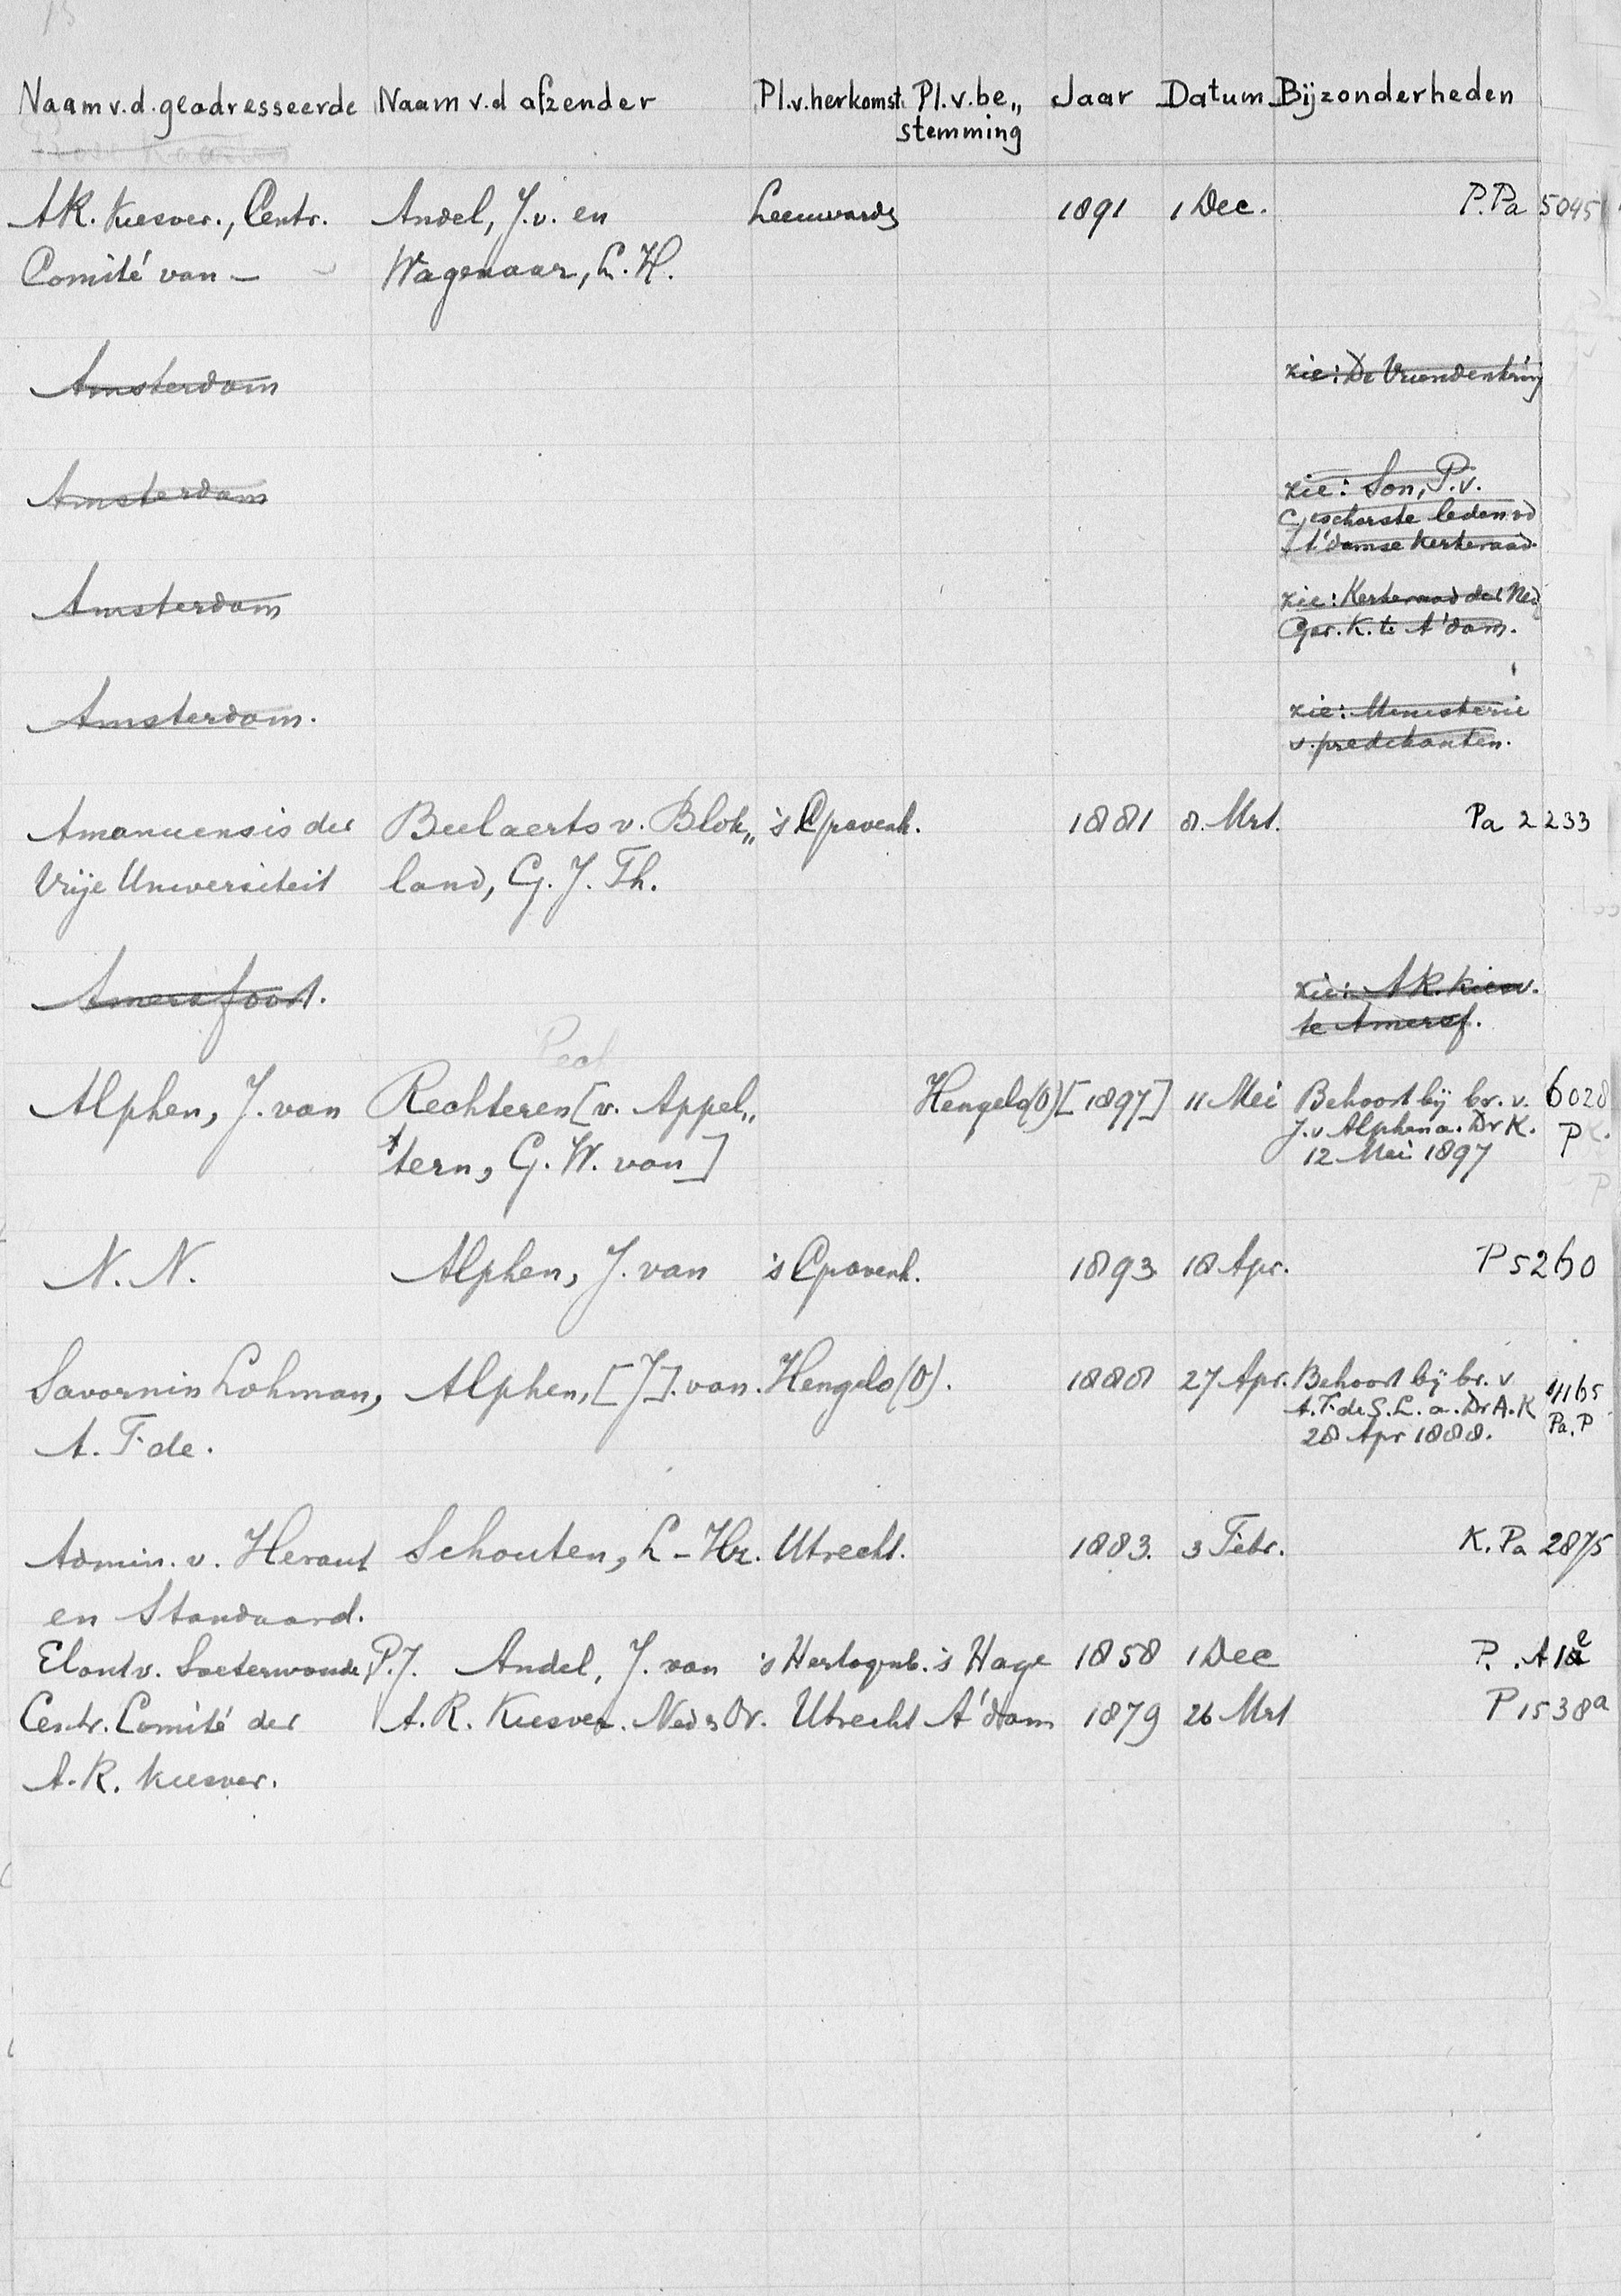 Naam v.d. geadresseerde Naam v.d afzender Pl.v.herkomst. Pl.v.be„ Jaar Datum Bijzonderheden
stemming
AR. Kiesver., Centr. Andel, J.v. en Leeuward. 1891 1 Dec. P.Pa 5045
Comité van - Wagenaar, L.H.
Amsterdam zie: De Vriendenkring
Amsterdam zie: Son, P.v.
Geschorste leden vd
A'damse Kerkeraad.
Amsterdam zie: Kerkeraad der Ned
Ger. K. te A'dam.
Amsterdam. zie: Ministerie
v. predikanten.
Amanuensis der Beelaerts v. Blok„ 's Gravenh. 1881 8. Mrt. Pa 2233
Vrije Universiteit land, G.J.Th.
Amersfoort. zie: AR. kiesv.
te Amersf.
Alphen, J. van Rechteren [v. Appel„ Hengelo(O) [1897] 11 Mei Behoort bij br. v. 6028
J.v Alphen a. Dr K. P
tern, G.W. van] 12 Mei 1897
N.N. Alphen, J. van 's Gravenh. 1893 18 Apr. P 5260
Savornin Lohman, Alphen, [J]. van. Hengelo (O). 1888 27 Apr. Behoort bij br. v 4165
A.F. de S.L. a. Dr A.K Pa.P
A. F. de. 28 Apr 1888.
Admin. v. Heraut Schouten, L-Hz. Utrecht. 1883. 3 Febr. K.Pa 2875
en Standaard.
Elout v. Soeterwoude, P.J. Andel, J. van 's Hertogenb. 's Hage 1858 1 Dec P.
Centr. Comité der A.R. Kiesver. Ned & Or. Utrecht A'dam 1879 26 Mrt P 1538a
A.R. kiesver.